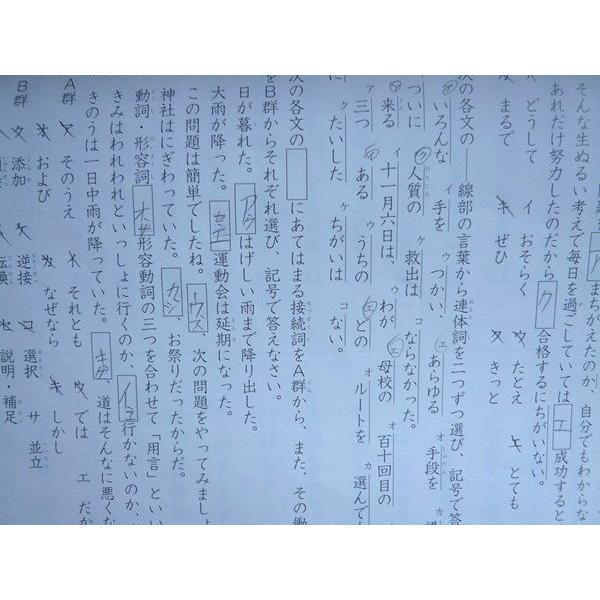 まちがえたのか、自分でもわからな
そんな生ぬるい考えで毎日を過ごしていては エ 成功すると
あれだけ努力したのだから ク 合格するにちがいない。
ア どうして イ おそらく ウ たとえ エ とても
まるで キ ぜひ ク きっと
次の各文の——線部の言葉から連体詞を二つずつ選び、記号で答
ア いろんな イ 手を ウ つかい、 エ あらゆる オ 手段を カ
ついに ク 人質の ケ 救出は コ ならなかった。
ア 来る イ 十一月六日は、 ウ わが エ 母校の オ 百十回目の
ア 三つ イ ある ウ うちの エ どの オ ルートを カ 選んで
ク たいした ケ ちがいは コ ない。
次の各文の にあてはまる接続詞をA群から、また、その働
をB群からそれぞれ選び、記号で答えなさい。
日が暮れた。 アシ はげしい雨まで降り出した。
大雨が降った。 運動会は延期になった。
この問題は簡単でしたね。 ウス 、次の問題をやってみまし
神社はにぎわっていた。 カシ お祭りだったからだ。
動詞・形容詞 オサ 形容動詞の三つを合わせて「用言」とい
きみはわれわれといっしょに行くのか、 行かないのか、
きのうは一日中雨が降っていた。 道はそんなに悪くな
A群 ア そのうえ イ それとも ウ では エ だか
オ および カ なぜなら キ しかし
B群 添加 逆接 選択 サ 並立
転換 説明・補足